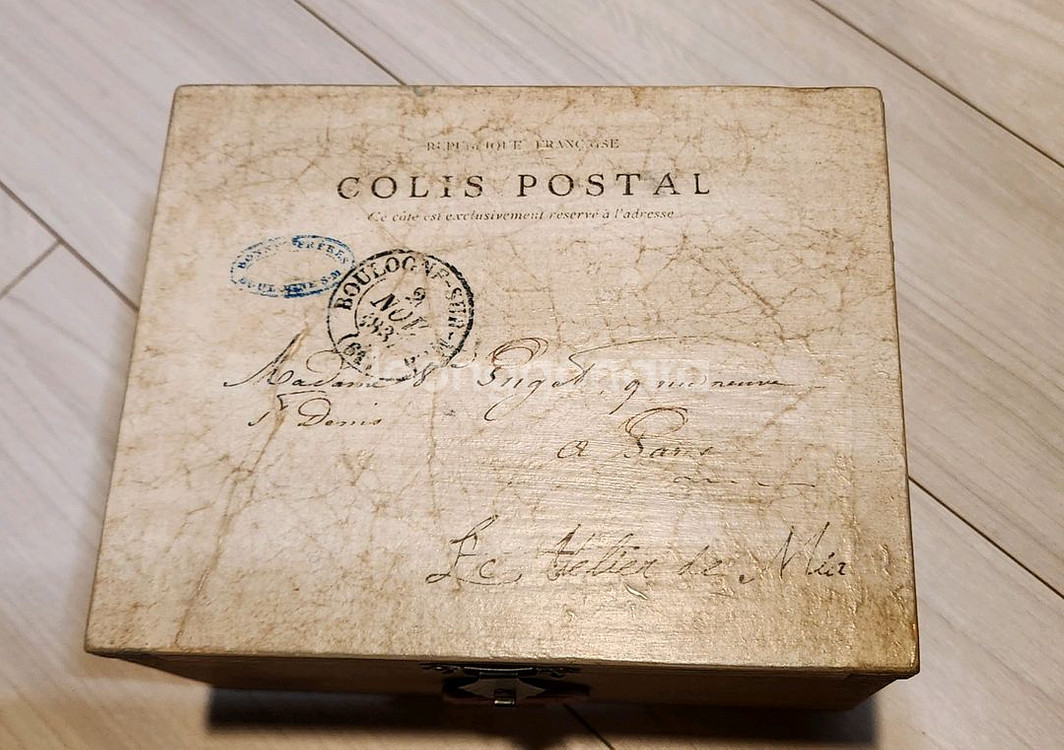 RÉPUBLIQUE FRANÇAISE
COLIS POSTAL
Ce côté est exclusivement réservé à l'adresse
FRÈRES
BOULOGNE-SUR-
9
NOV
Madame Puget, 9 rue neuve
St Denis
a Paris
Le Atelier de Mir